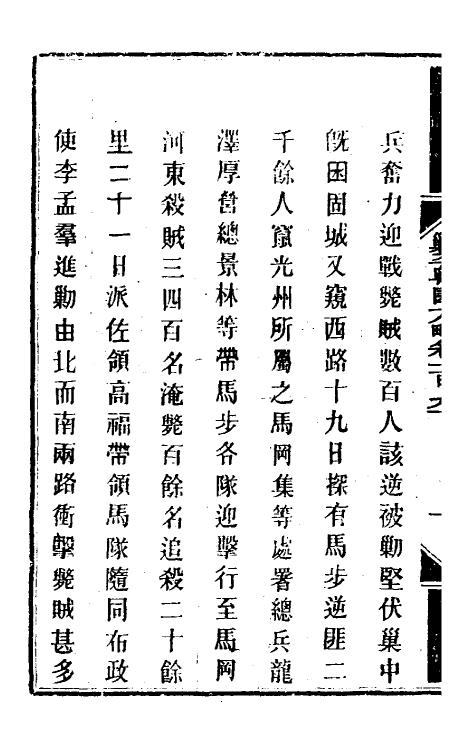 兵奮力迎戰斃賊數百人該逆被勦堅伏巢中
旣困固城又窺西路十九日探有馬步逆匪二
千餘人竄光州所屬之馬岡集等處署總兵龍
澤厚營總景林等帶馬步各隊迎擊行至馬岡
河東殺賊三四百名淹斃百餘名追殺二十餘
里二十一日派佐領高福帶領馬隊隨同布政
使李孟羣進勦由北而南兩路衝擊斃賊甚多